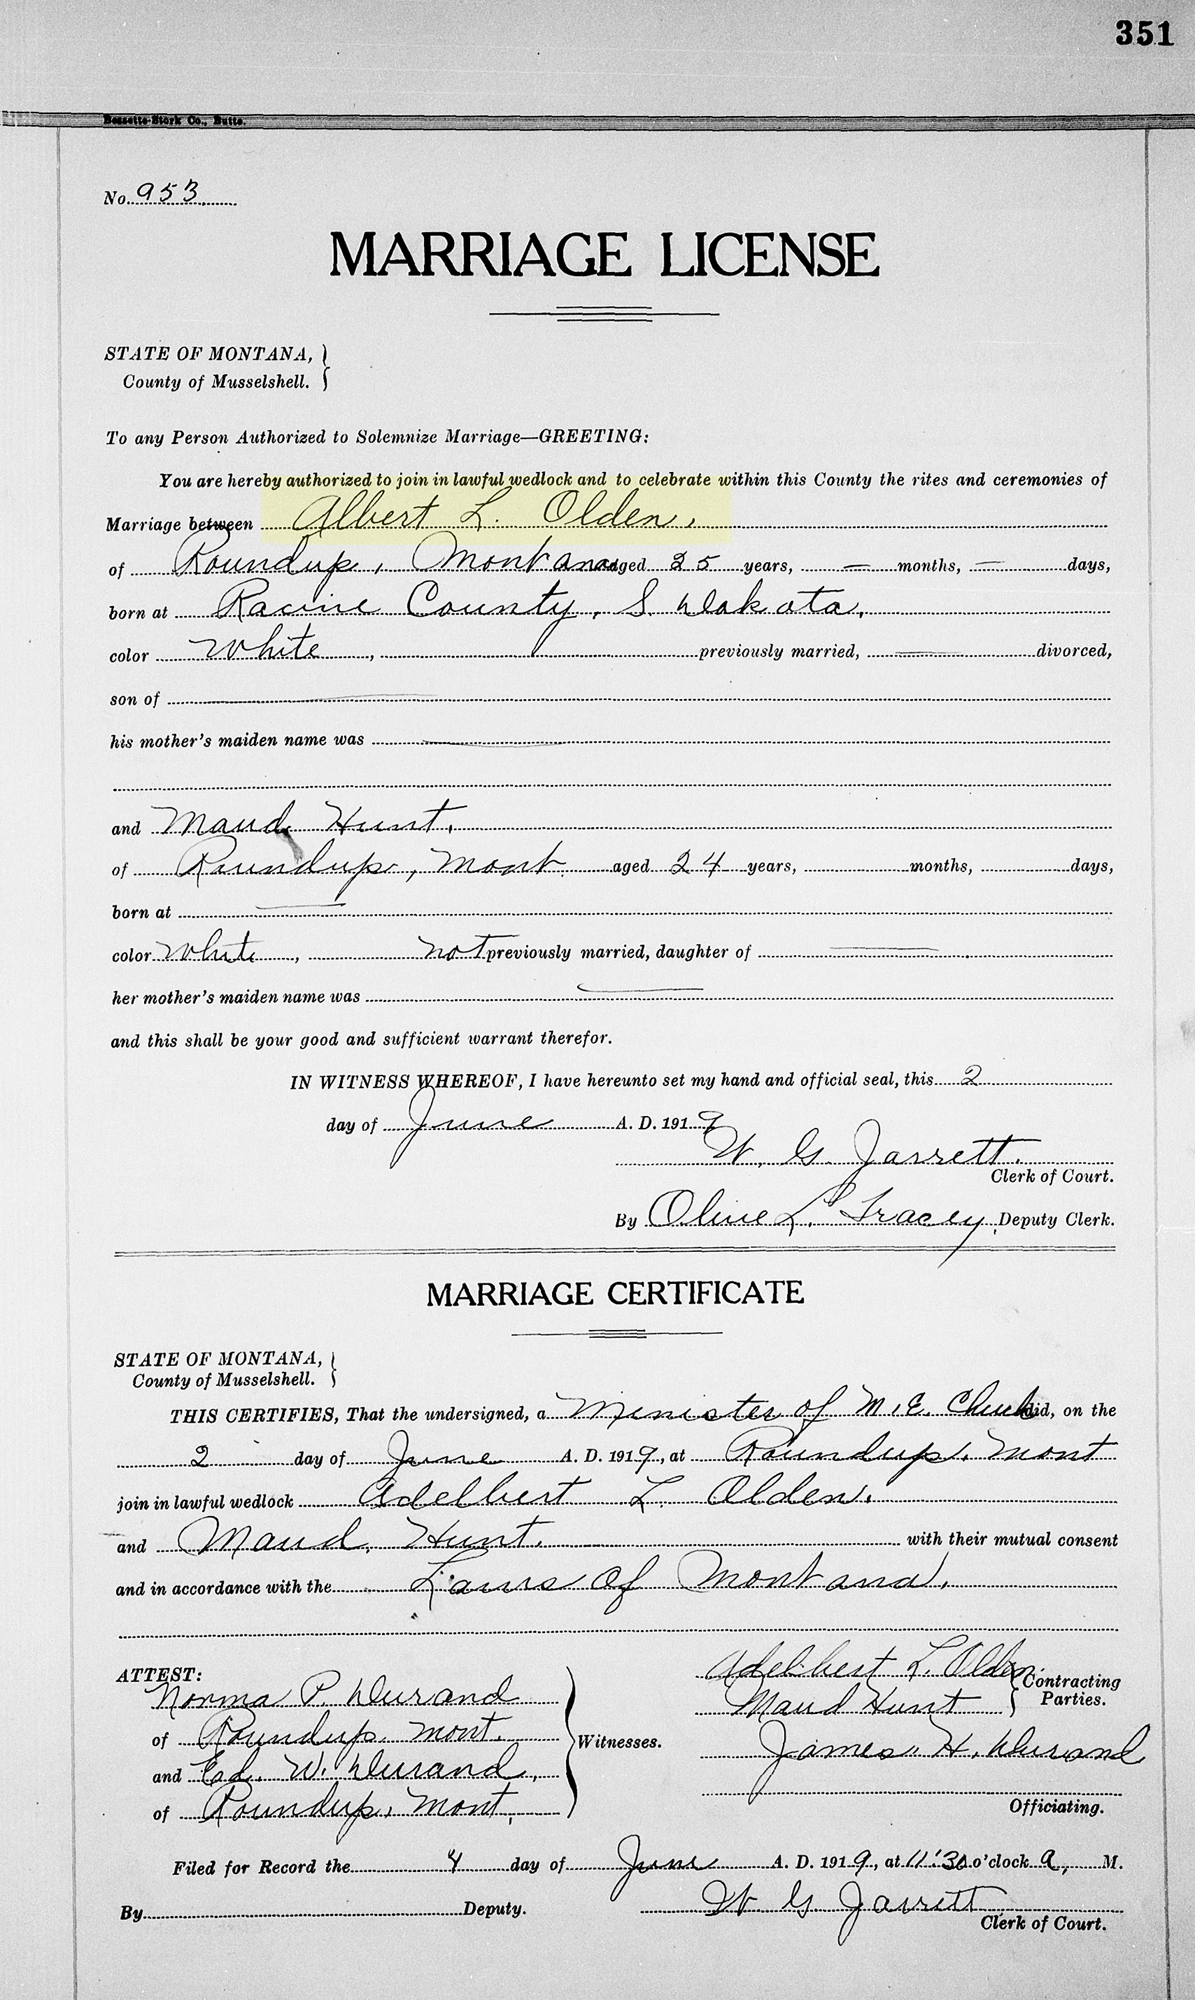 351
Bessette-Stork Co., Butte.
No. 953
MARRIAGE LICENSE
STATE OF MONTANA,
County of Musselshell.
To any Person Authorized to Solemnize Marriage—GREETING:
You are hereby authorized to join in lawful wedlock and to celebrate within this County the rites and ceremonies of
Marriage between Albert L. Olden.
of Roundup, Montana aged 25 years, — months, — days,
born at Racine County, S. Dakota,
color White, previously married, — divorced,
son of —
his mother's maiden name was —
and Maud Hunt.
of Roundup, Mont. aged 24 years, months, days,
born at —
color White, not previously married, daughter of —
her mother's maiden name was —
and this shall be your good and sufficient warrant therefor.
IN WITNESS WHEREOF, I have hereunto set my hand and official seal, this 2
day of June A. D. 1919
W. G. Jarrett.
Clerk of Court.
By Olive L. Tracey, Deputy Clerk.
MARRIAGE CERTIFICATE
STATE OF MONTANA,
County of Musselshell.
THIS CERTIFIES, That the undersigned, a Minister of M.E. Church did, on the
2 day of June A. D. 1919, at Roundup, Mont
join in lawful wedlock Adelbert L. Olden.
and Maud Hunt. with their mutual consent
and in accordance with the Laws of Montana.
ATTEST:
Norma P. Durand
of Roundup, Mont.
and Ed. W. Durand,
of Roundup, Mont.
Witnesses.
Adelbert L. Olden
Maud Hunt
Contracting Parties.
James H. Durand
Officiating.
Filed for Record the 4 day of June A. D. 1919, at 11:30 o'clock a, M.
W G Jarrett
By Deputy. Clerk of Court.